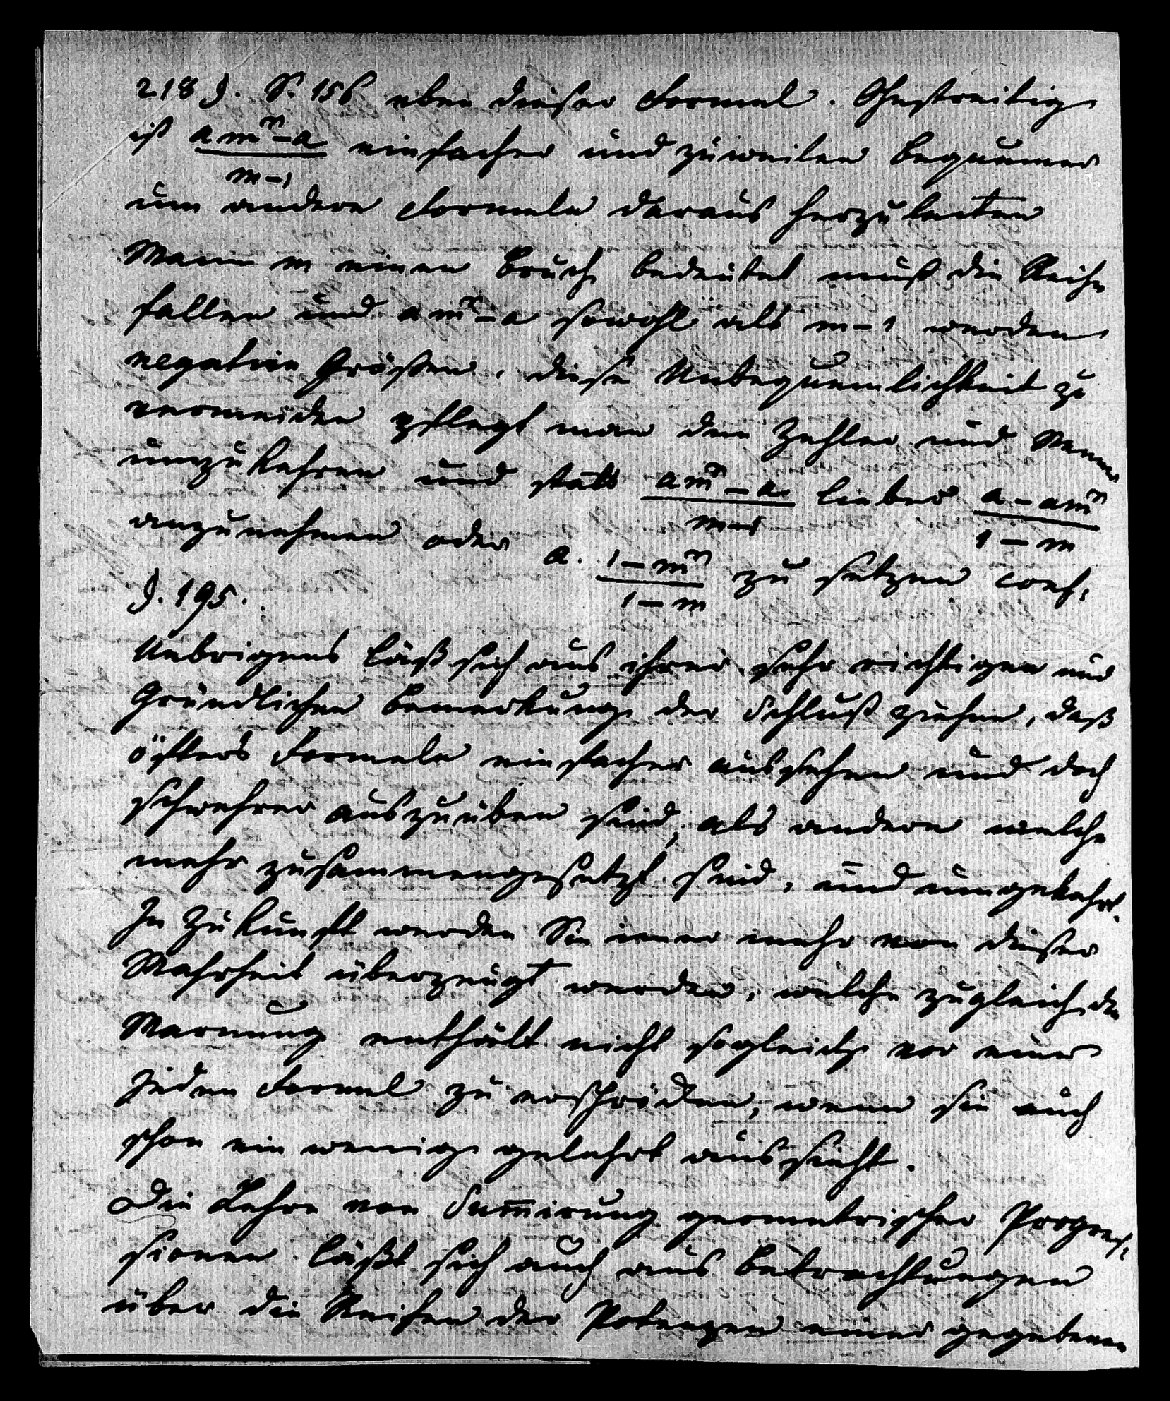 218 §. S. 156 eben dieser Formel. Unstreitig
ist \frac{am^n-a}{m-1} einfacher und zuweilen bequemer
um andere Formeln daraus herzuleiten
Wann m einen Bruch bedeutet muß die Reihe
fallen und am^n-a sowohl als m-1 werden
negative Größen. diese Unbequemlichkeit zu
vermeiden pflegt man den Zehler und Nenner
umzukehren und statt \frac{am^n-a}{m-1} lieber \frac{a-am^n}{1-m}
anzunehmen oder a. \frac{1-m^n}{1-m} zu setzen conf.
§. 195.
Uebrigens läßt sich aus ihrer sehr richtigen und
Gründlichen Bemerkung der Schluß ziehen, daß
öfters Formeln einfacher aussehen und doch
schwehrer auszuüben sind, als andere welche
mehr zusammengesetzt sind, und umgekehrt.
In Zukunft werden Sie imer mehr von dieser
Wahrheit überzeugt werden, welche zugleich die
Warnung enthält nicht sogleich vor einer
jeden Formel zu erschröcken, wenn sie auch
schon ein wenig gelehrt aussieht.
Die Lehre von Sum̅irung geometrischer Progres-
sionen läßt sich auch aus Betrachtungen
über die Reihen der Potenzen einer gegebenen